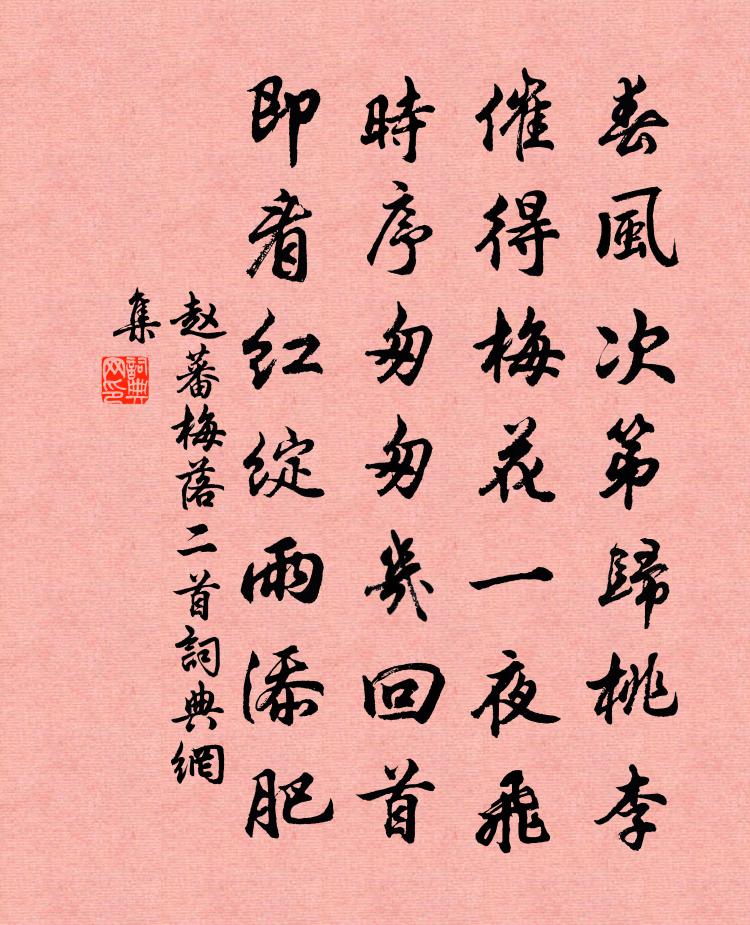 春風次第歸桃李
催得梅花一夜飛
時序匆匆幾回首
即看紅綻雨添肥
赵蕃梅落二首詞典網
集
詞典网印